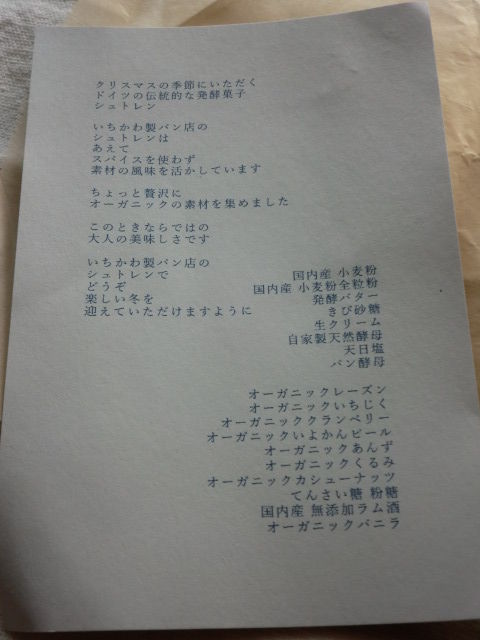 クリスマスの季節にいただく
ドイツの伝統的な発酵菓子
シュトレン
いちかわ製パン店の
シュトレンは
あえて
スパイスを使わず
素材の風味を活かしています
ちょっと贅沢に
オーガニックの素材を集めました
このときならではの
大人の美味しさです
いちかわ製パン店の
シュトレンで
どうぞ
楽しい冬を
迎えていただけますように
国内産 小麦粉
国内産 小麦粉全粒粉
発酵バター
きび砂糖
生クリーム
自家製天然酵母
天日塩
パン酵母
オーガニックレーズン
オーガニックいちじく
オーガニッククランベリー
オーガニックいよかんピール
オーガニックあんず
オーガニックくるみ
オーガニックカシューナッツ
てんさい糖 粉糖
国内産 無添加ラム酒
オーガニックバニラ